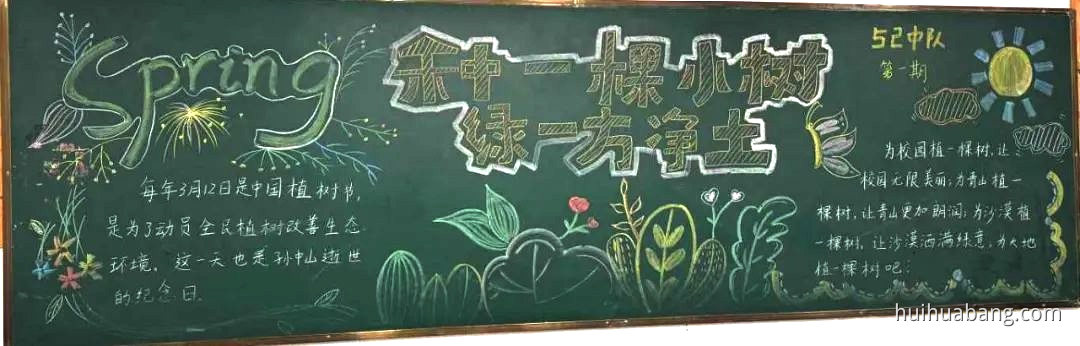 Spring
种一棵小树
绿一方净土
52中队
第一期
每年3月12日是中国植树节,
是为了动员全民植树改善生态
环境。这一天也是孙中山逝世
的纪念日。
为校园植一棵树,让
校园无限美丽;为青山植一
棵树,让青山更加朗润;为沙漠植
一棵树,让沙漠洒满绿意;为大地
植一棵树吧!
huihuabang.com